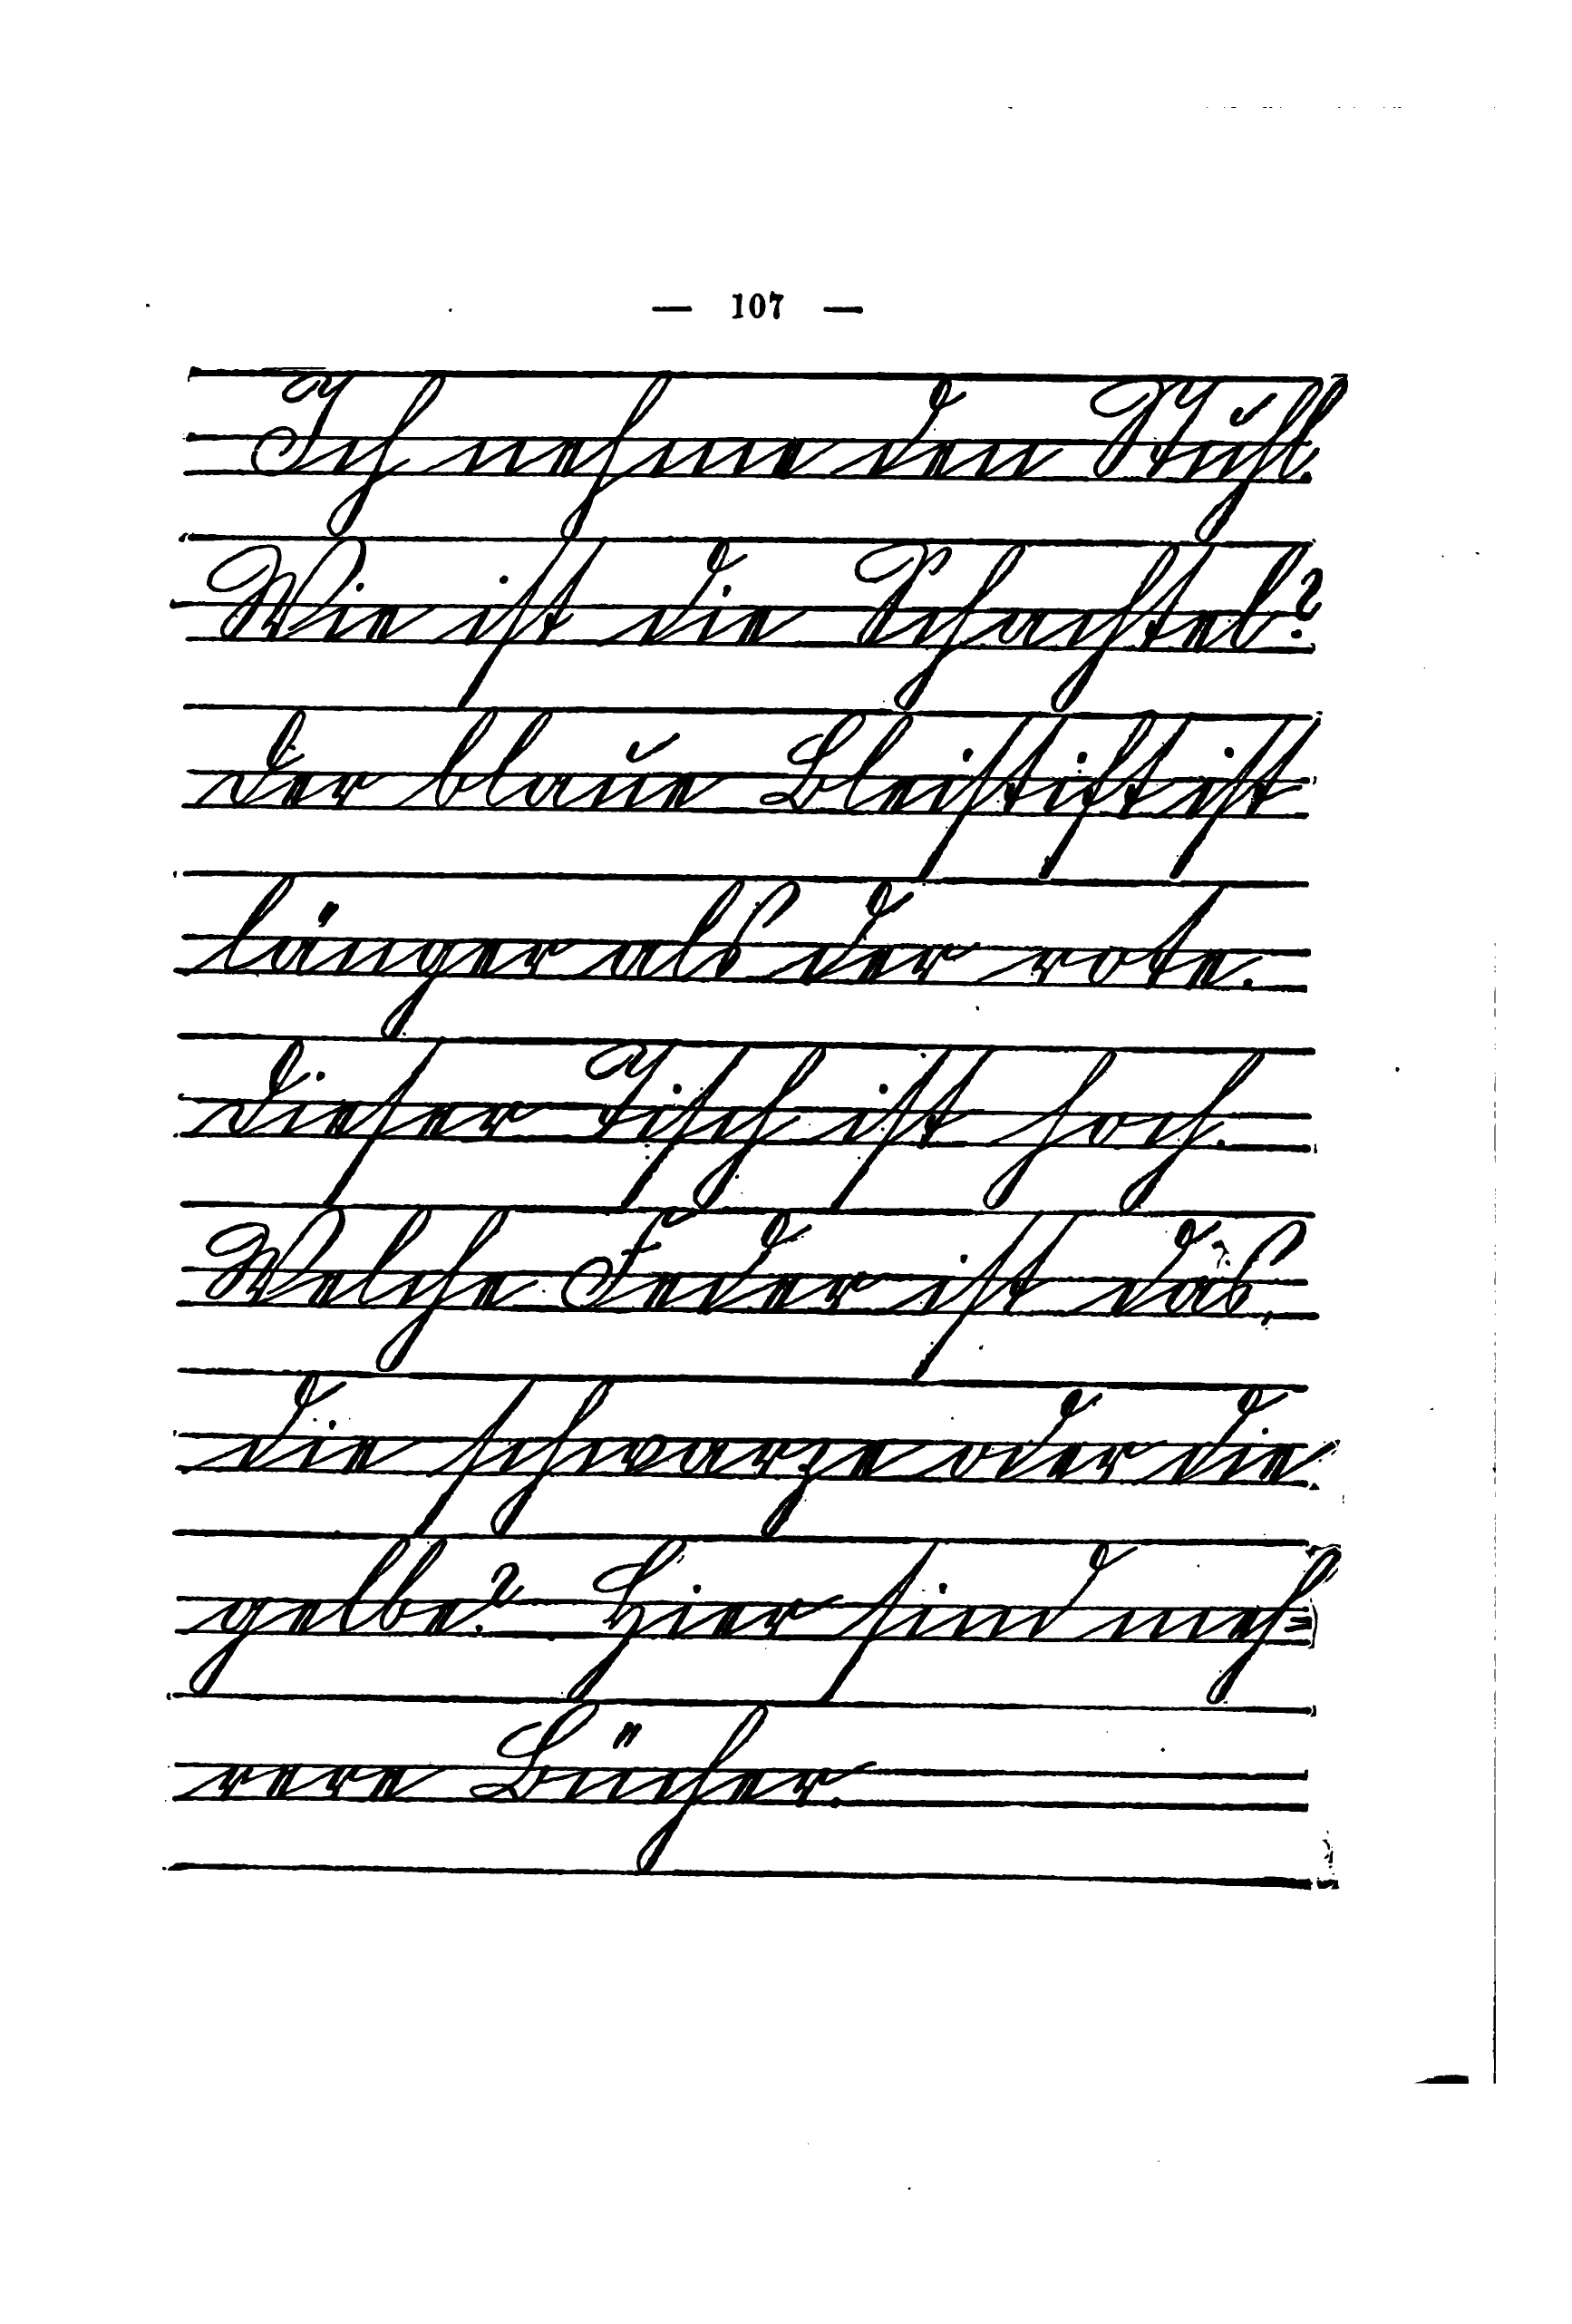 — 107 —
Ich nehme den Stuhl.
Wie ist die Schachtel?
der blaue Bleistift ist
länger als der rote.
dieser Tisch ist hoch.
Welche Feder ist das,
die schwarze oder die
gelbe? Hier sind meh=
rere Bücher.